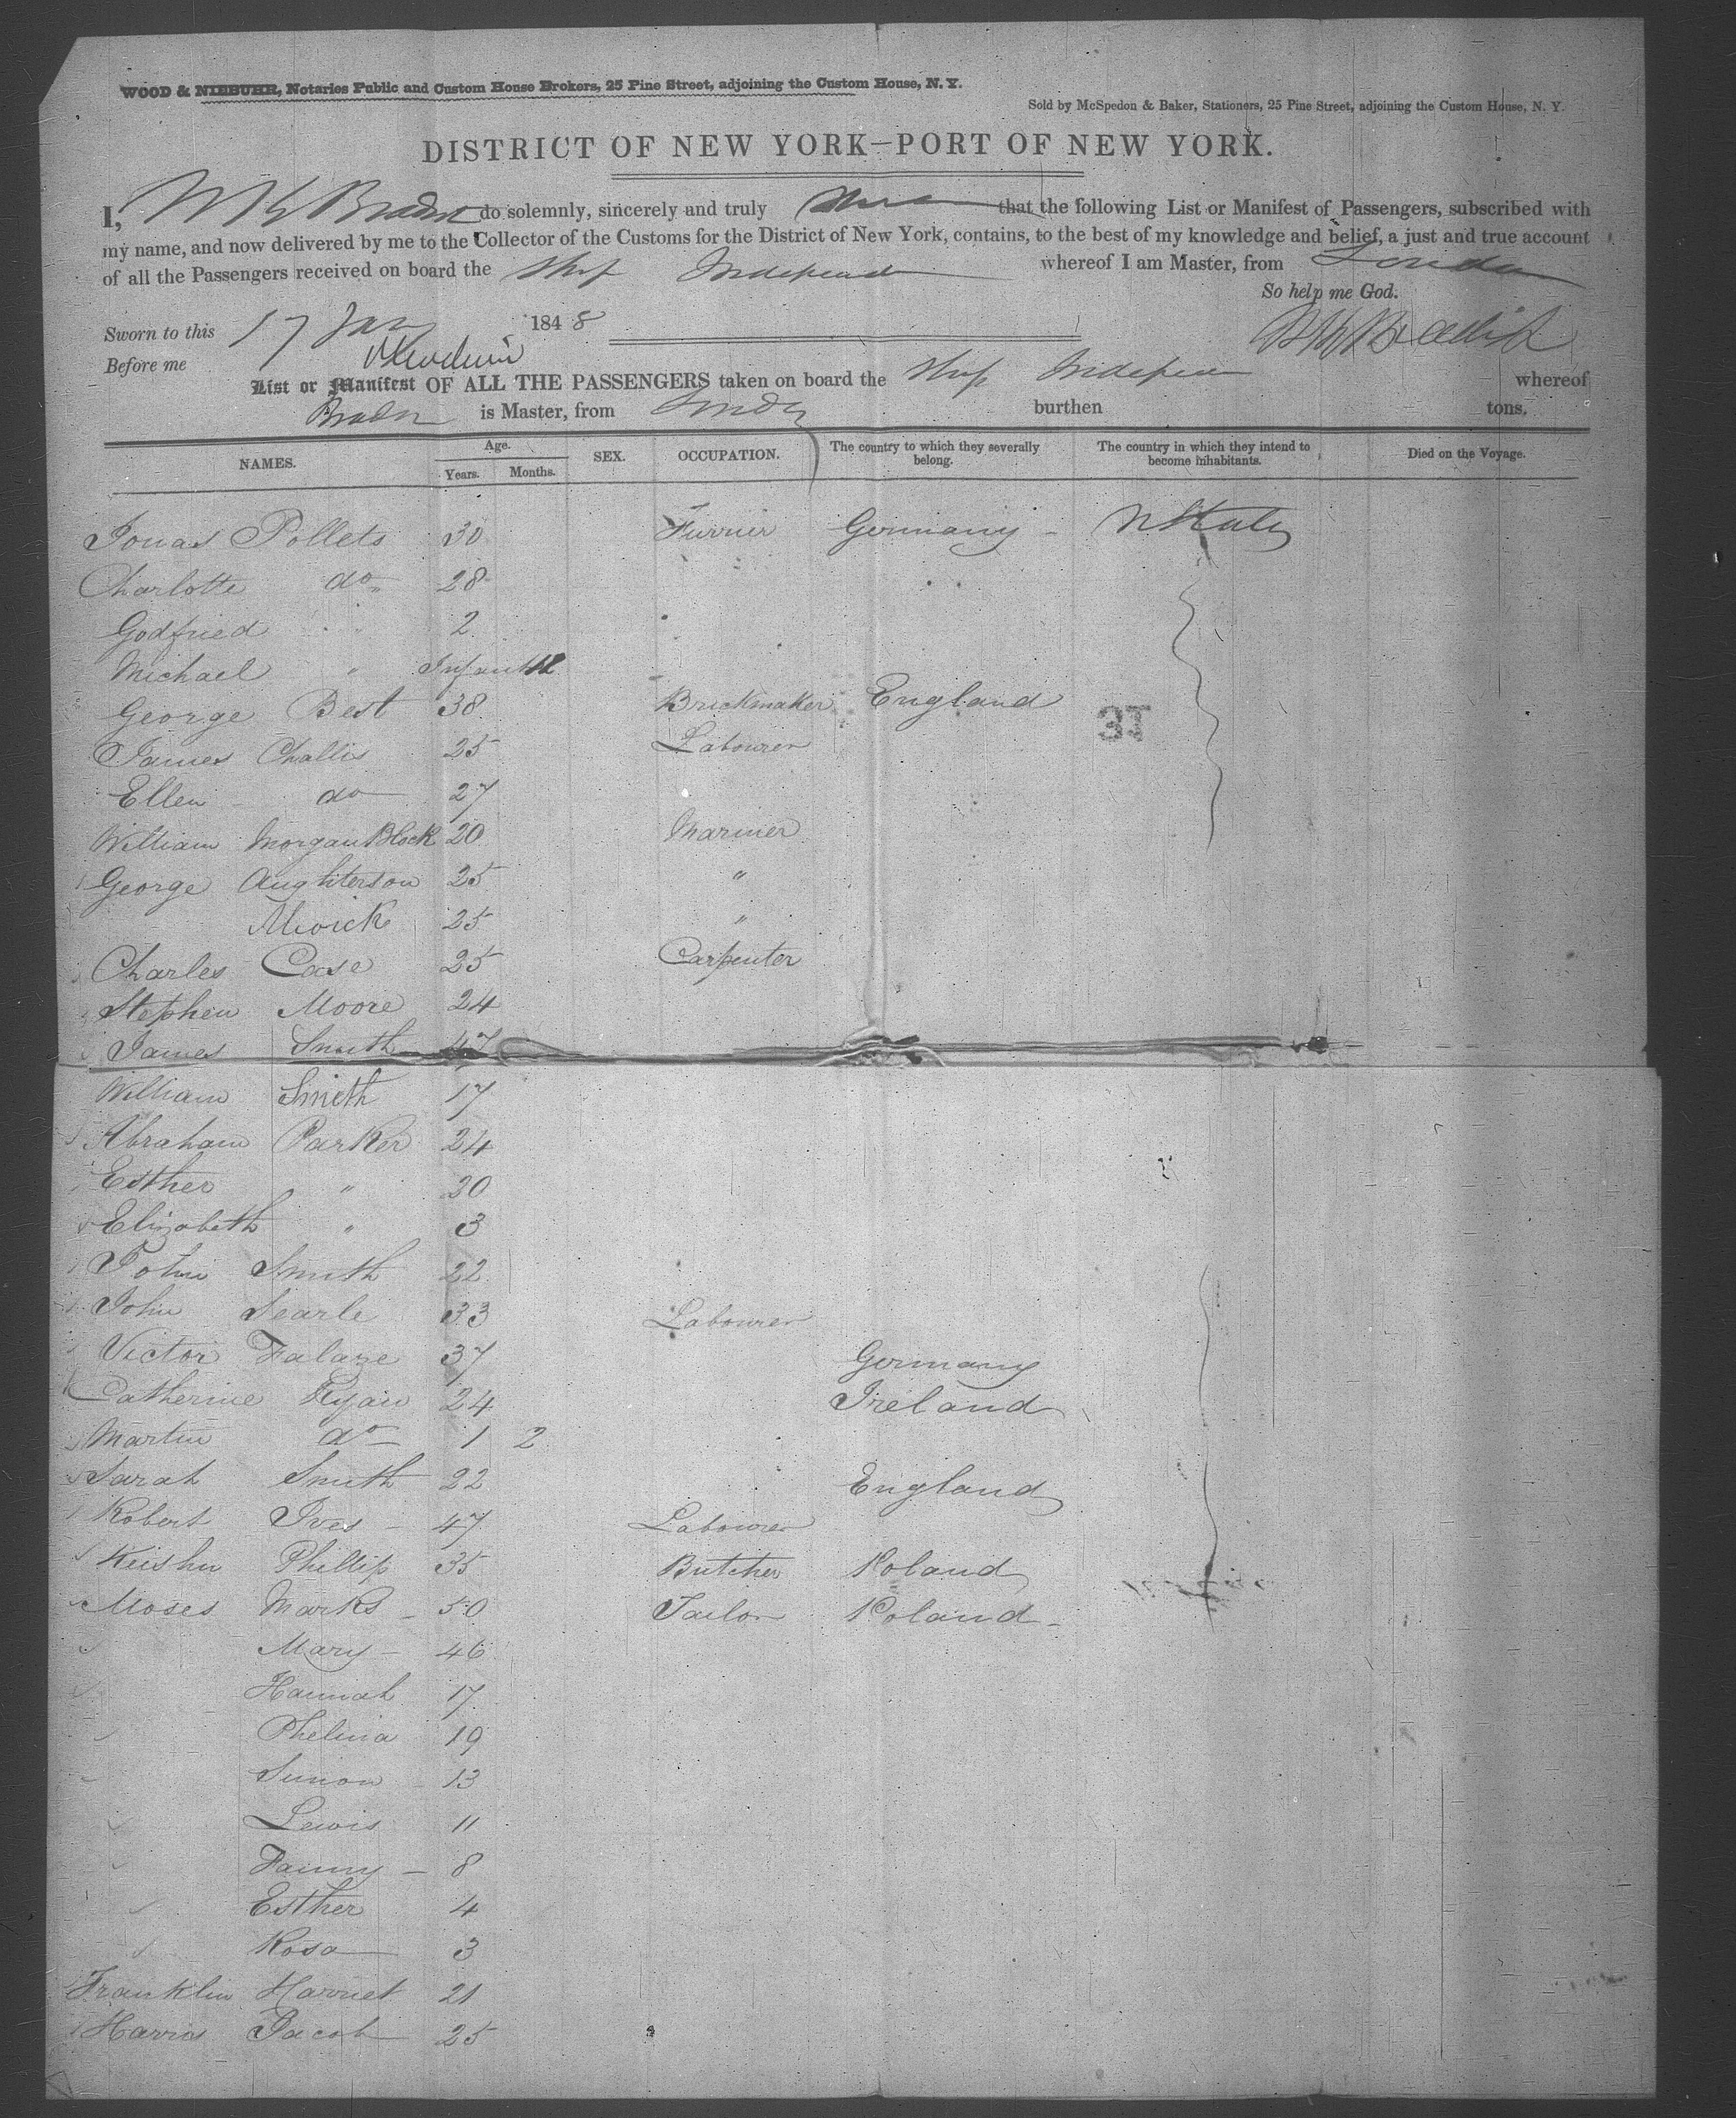 WOOD & NIEBUHR, Notaries Public and Custom House Brokers, 25 Pine Street, adjoining the Custom House, N. Y.
Sold by McSpedon & Baker, Stationers, 25 Pine Street, adjoining the Custom House, N. Y.
DISTRICT OF NEW YORK—PORT OF NEW YORK.
I, do solemnly, sincerely and truly that the following List or Manifest of Passengers, subscribed with
my name, and now delivered by me to the Collector of the Customs for the District of New York, contains, to the best of my knowledge and belief, a just and true account
of all the Passengers received on board the Ship Independ whereof I am Master, from London
So help me God.
Sworn to this 17 Jany 1848
Before me
List or Manifest OF ALL THE PASSENGERS taken on board the Ship Indepen whereof
is Master, from burthen tons.
NAMES. Age. Years. Months. SEX. OCCUPATION. The country to which they severally belong. The country in which they intend to become inhabitants. Died on the Voyage.
Jonas Pollets 30 Furrier Germany
Charlotte do 28
Godfried " 2
Michael " Infant
George Best 38 Brickmaker England
37
James Challis 25 Labourer
Ellen do 27
William Morgan Block 20 Mariner
George Aughterson 25 "
25 "
Charles Case 25 Carpenter
Stephen Moore 24
James Smith 47
William Smith 17
Abraham Parker 24
Esther " 20
Elizabeth " 3
John Smith 22
John Searle 33 Labourer
Victor Falaze 37 Germany
Catherine Ryan 24 Ireland
Martin do 1 2
Sarah Smith 22 England
Robert Ives 47 Labourer
Phillip 35 Butcher Poland
Moses Marks 50 Tailor Poland
Mary 46
Hannah 17
Phelina 19
Simon 13
Lewis 11
Fanny 8
Esther 4
Rosa 3
Franklin Harriet 21
Harris Jacob 25